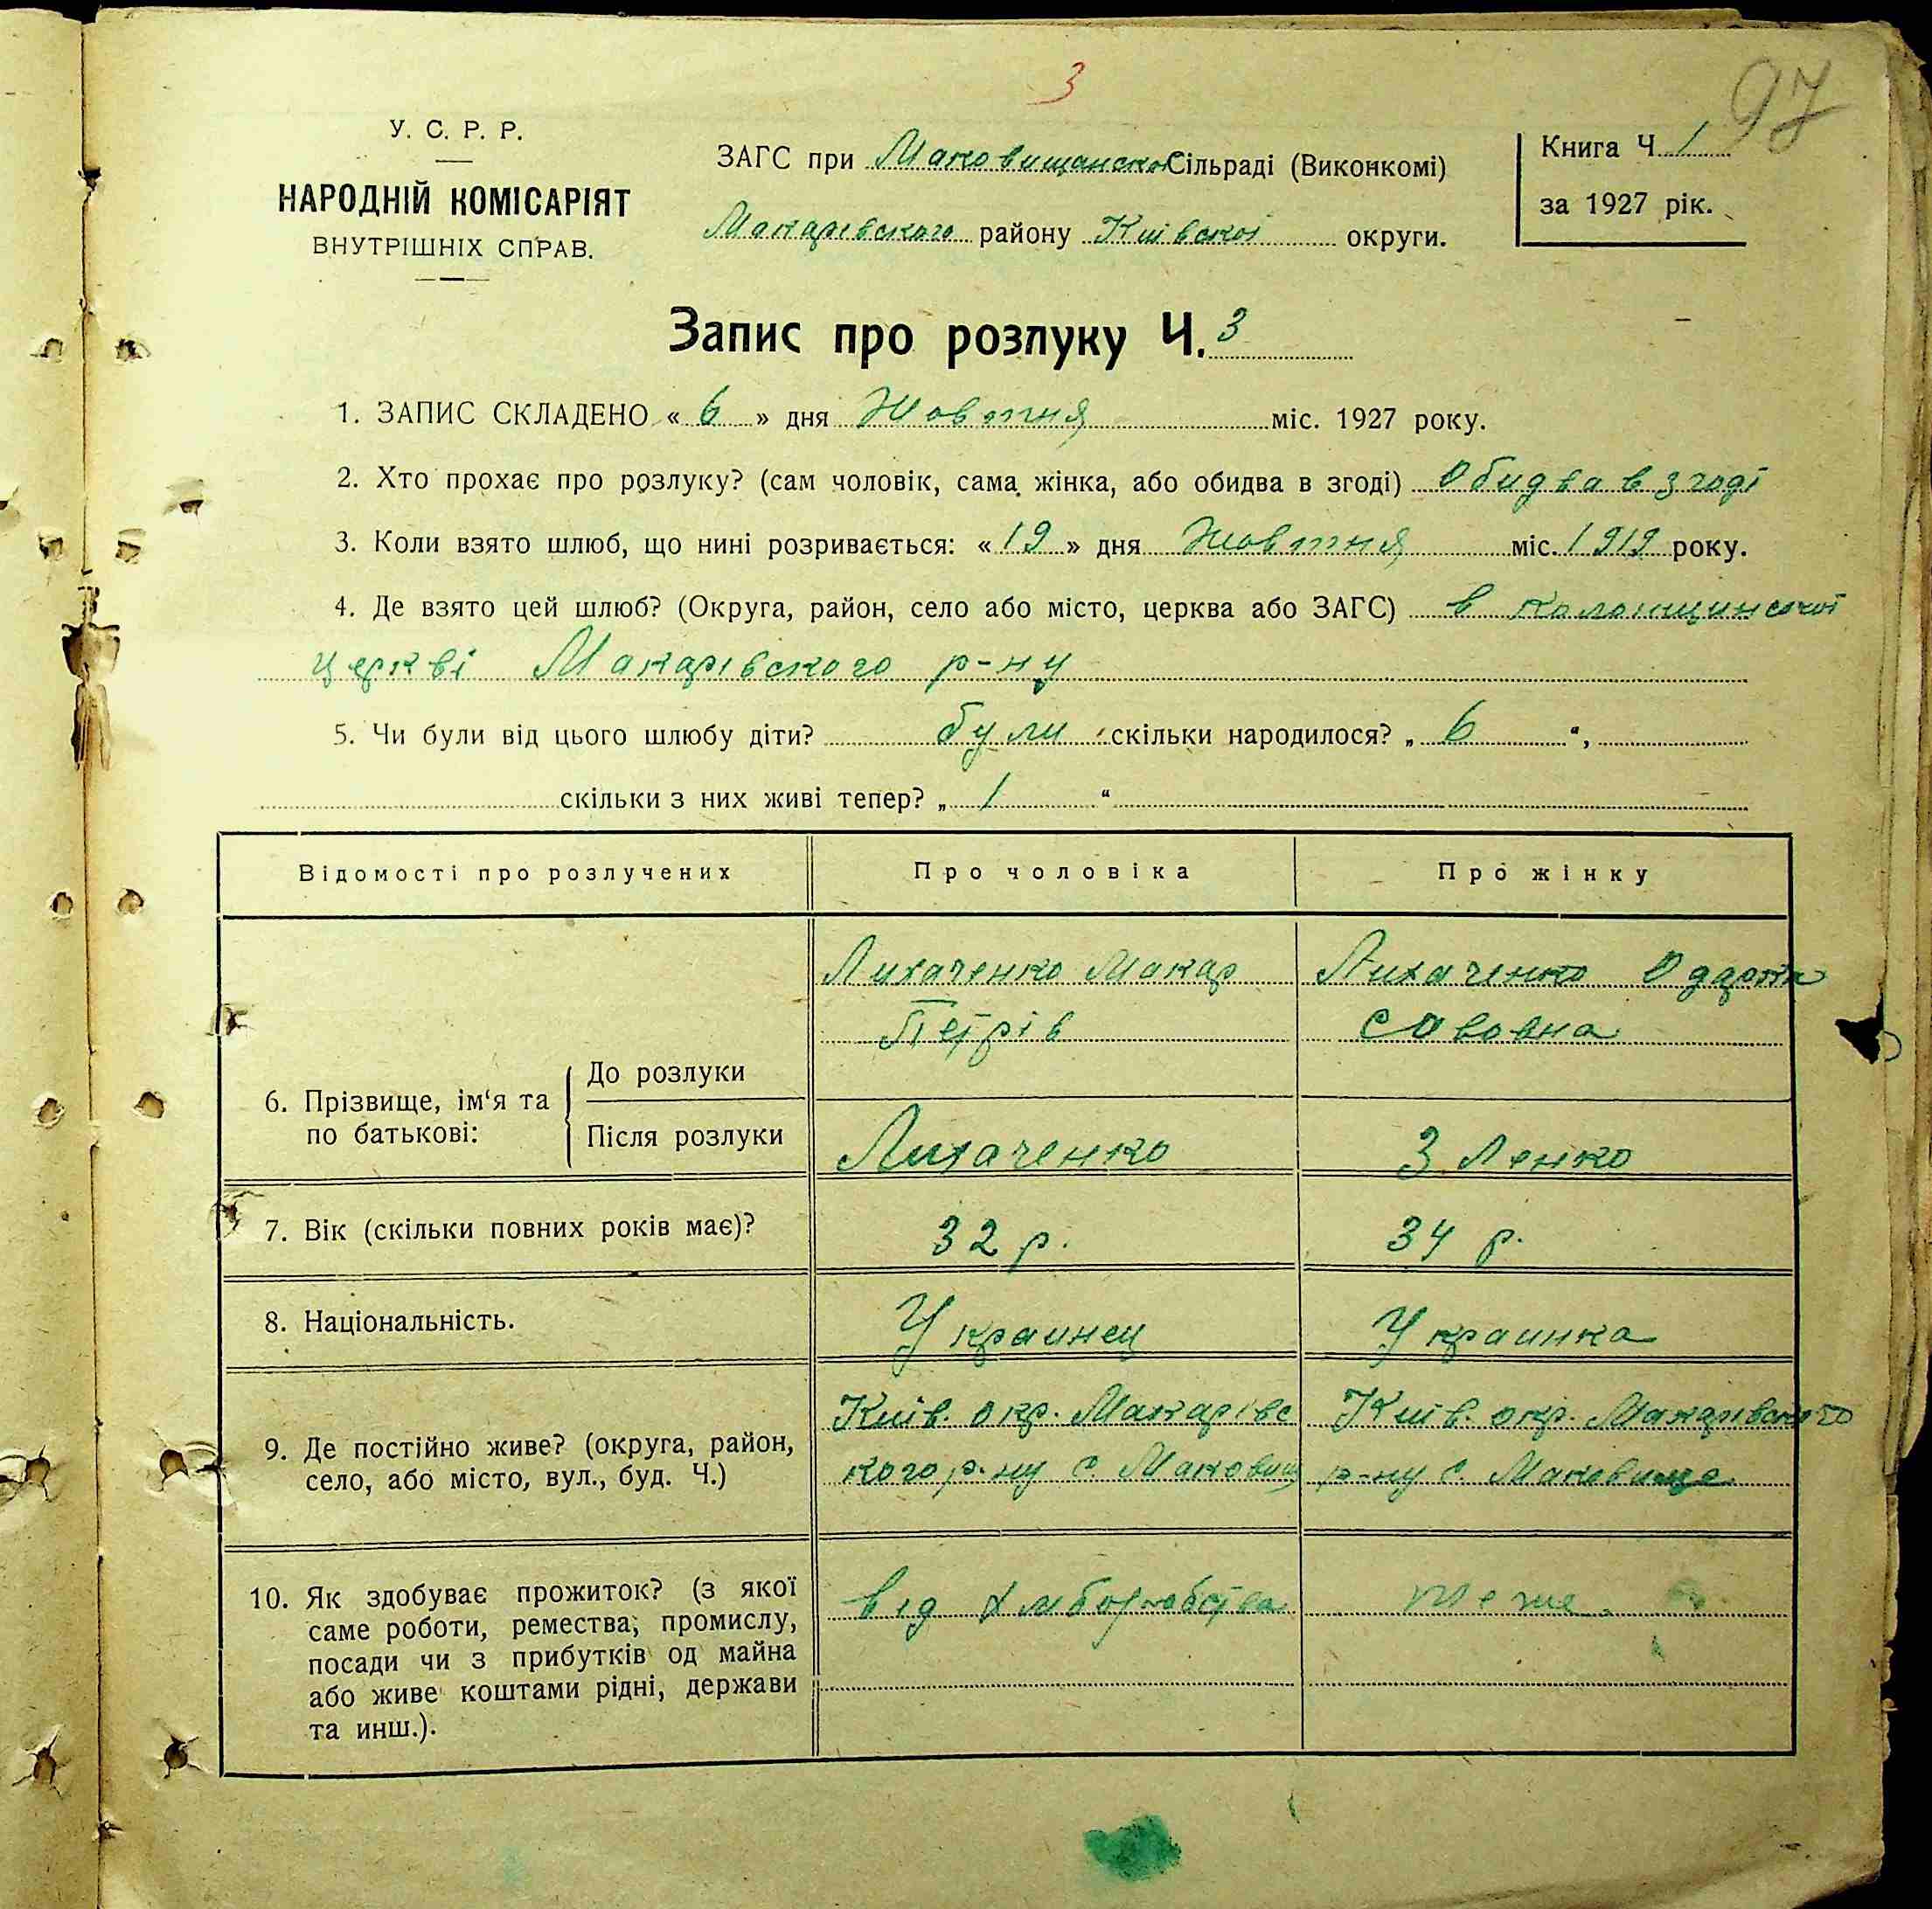 3
97
У. С. Р. Р.
НАРОДНІЙ КОМІСАРІЯТ
ВНУТРІШНІХ СПРАВ.
ЗАГС при Маковищанской Сільраді (Виконкомі)
Макарівского району Київскої округи.
Книга Ч. 1
за 1927 рік.
Запис про розлуку Ч. 3
1. ЗАПИС СКЛАДЕНО « 6 » дня Жовтня міс. 1927 року.
2. Хто прохає про розлуку? (сам чоловік, сама жінка, або обидва в згоді) Обидва в згоді
3. Коли взято шлюб, що нині розривається: « 19 » дня Жовтня міс. 1919 року.
4. Де взято цей шлюб? (Округа, район, село або місто, церква або ЗАГС) в Колонщинскої
церкві Макарівского р-ну
5. Чи були від цього шлюбу діти? були скільки народилося? „ 6 “,
скільки з них живі тепер? „ 1 “
Відомості про розлучених
Про чоловіка
Про жінку
6. Прізвище, ім‘я та по батькові:
До розлуки
Лихаченко Макар
Петрів
Лихаченко Одарка
Савовна
Після розлуки
Лихаченко
Зленко
7. Вік (скільки повних років має)?
32 р.
34 р.
8. Національність.
Украинец
Украинка
9. Де постійно живе? (округа, район,
село, або місто, вул., буд. Ч.)
Київ. окр. Макарівс
кого р-ну с. Маковищ
Київ. окр. Макарівского
р-ну с. Маковище
10. Як здобуває прожиток? (з якої
саме роботи, ремества, промислу,
посади чи з прибутків од майна
або живе коштами рідні, держави
та инш.).
від
теже.